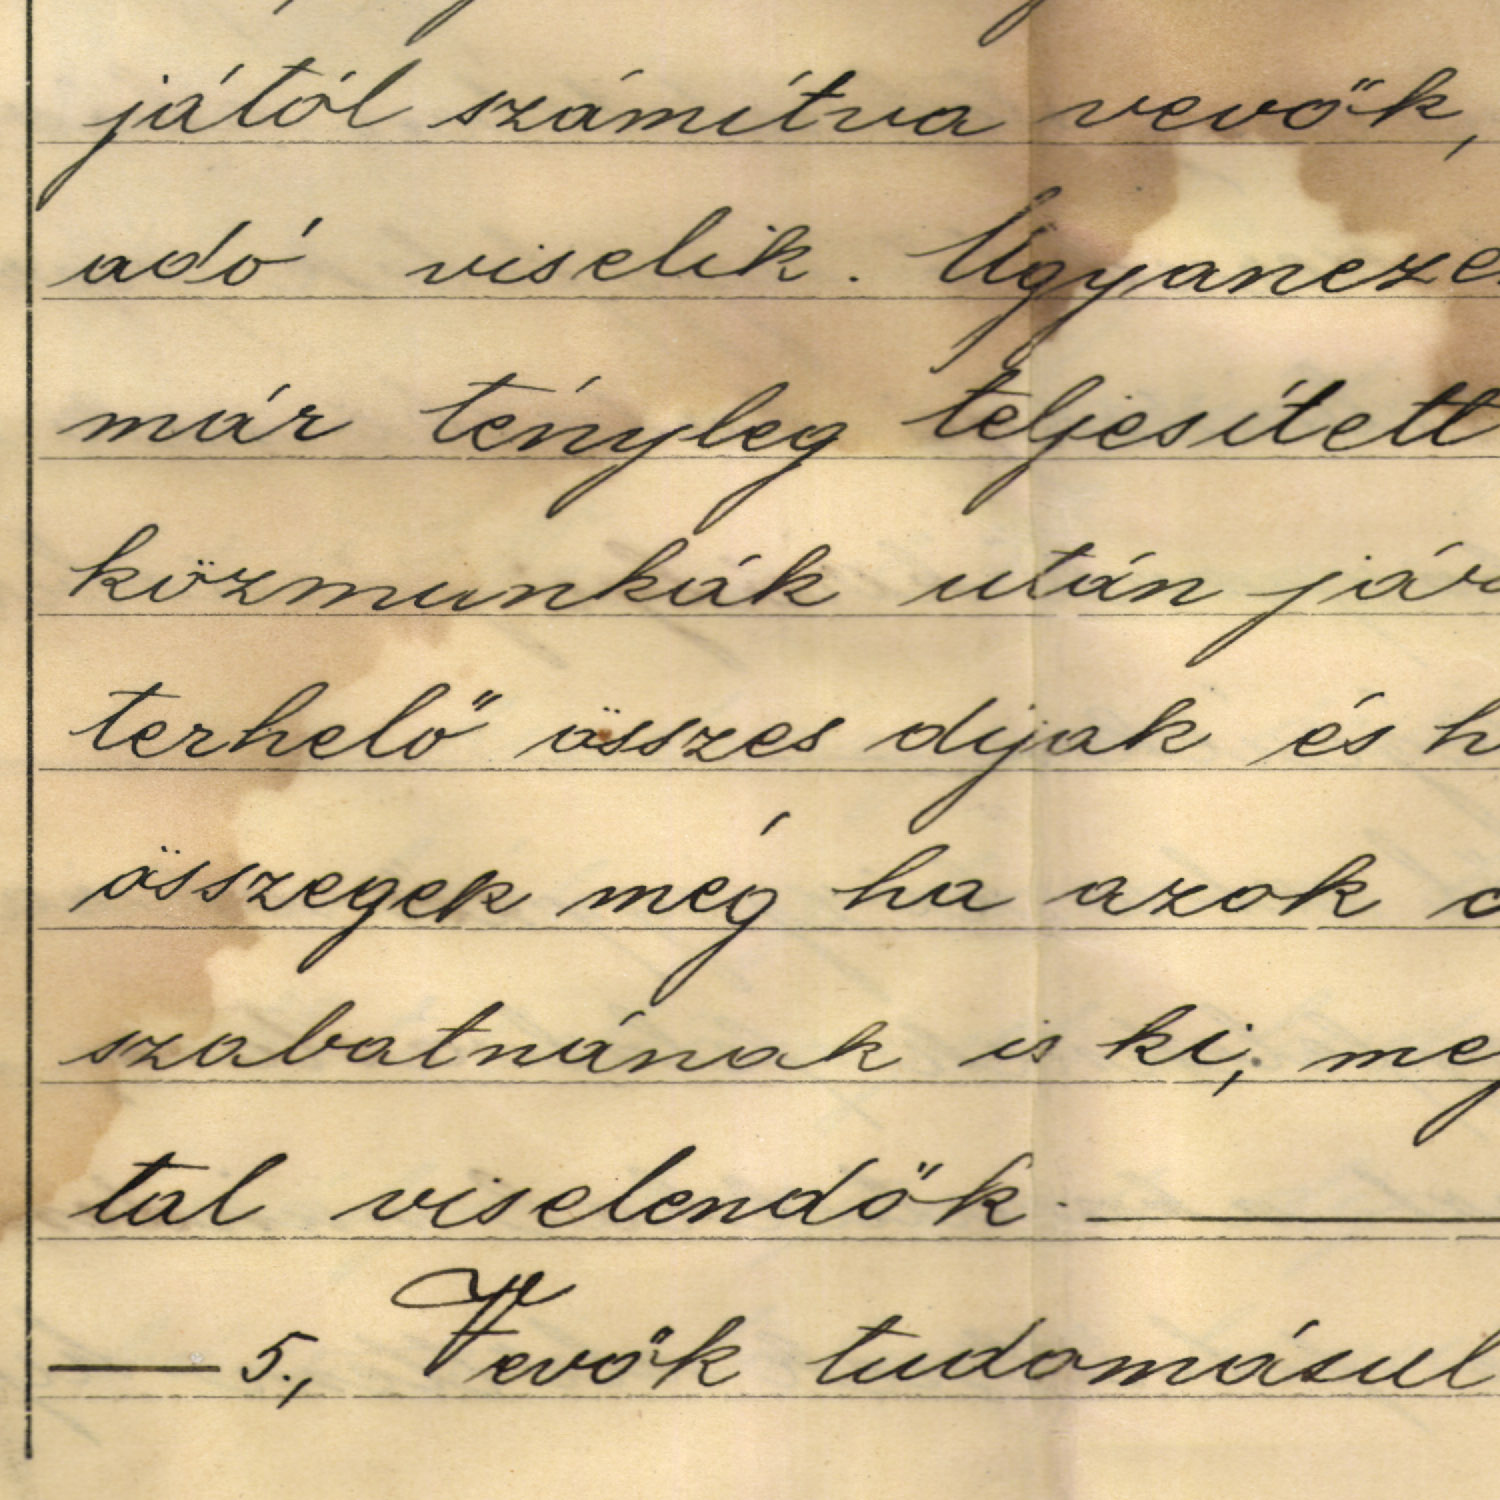 jától számítva vevők,
adó viselik. Ugyaneze
már tényleg teljesített
közmunkák után jár
terhelő összes díjak és h
összegek még ha azok
szabatnának is ki, meg
tal viselendők.
5., Vevők tudomásul